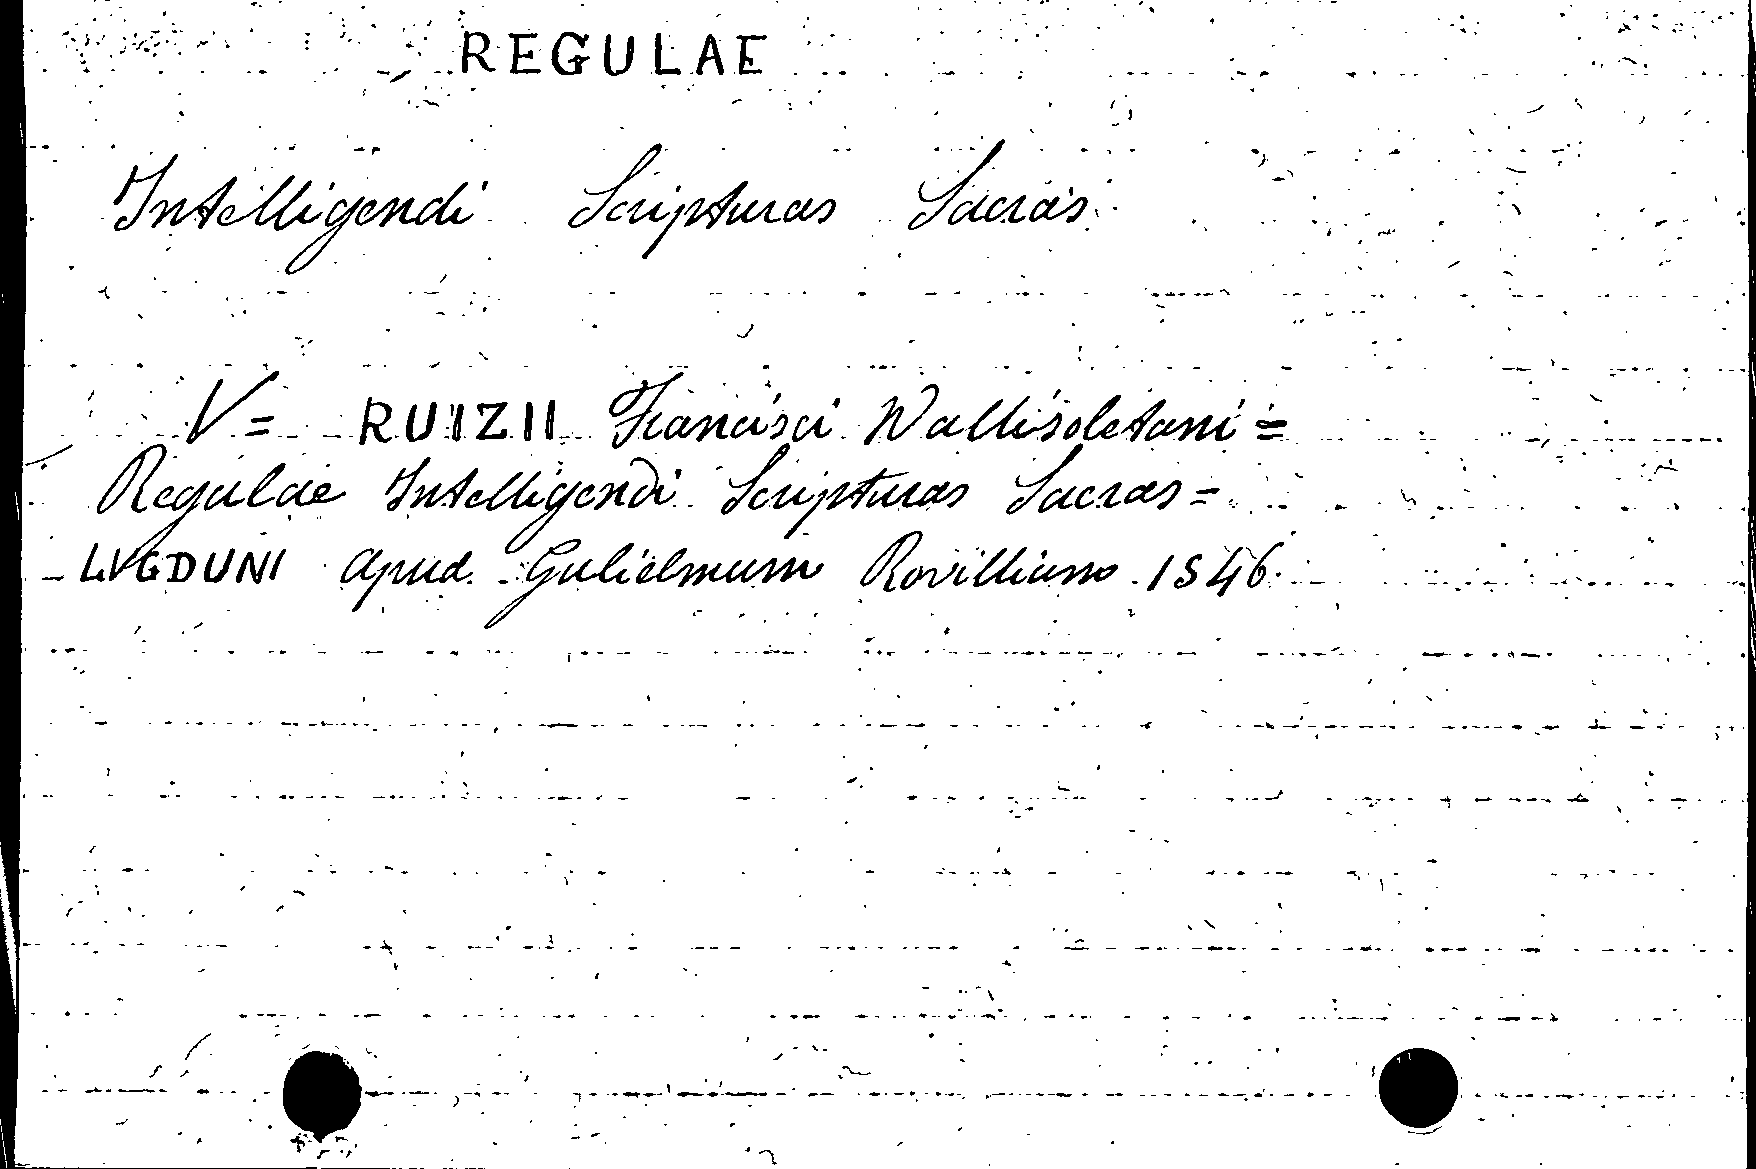 REGULAE
Intelligendi Scripturas Sacras
V= RUIZII Francisci Wallisoletani=
Regulae Intelligendi Scripturas Sacras=
LVGDUNI apud Gulielmum Rovillium 1546